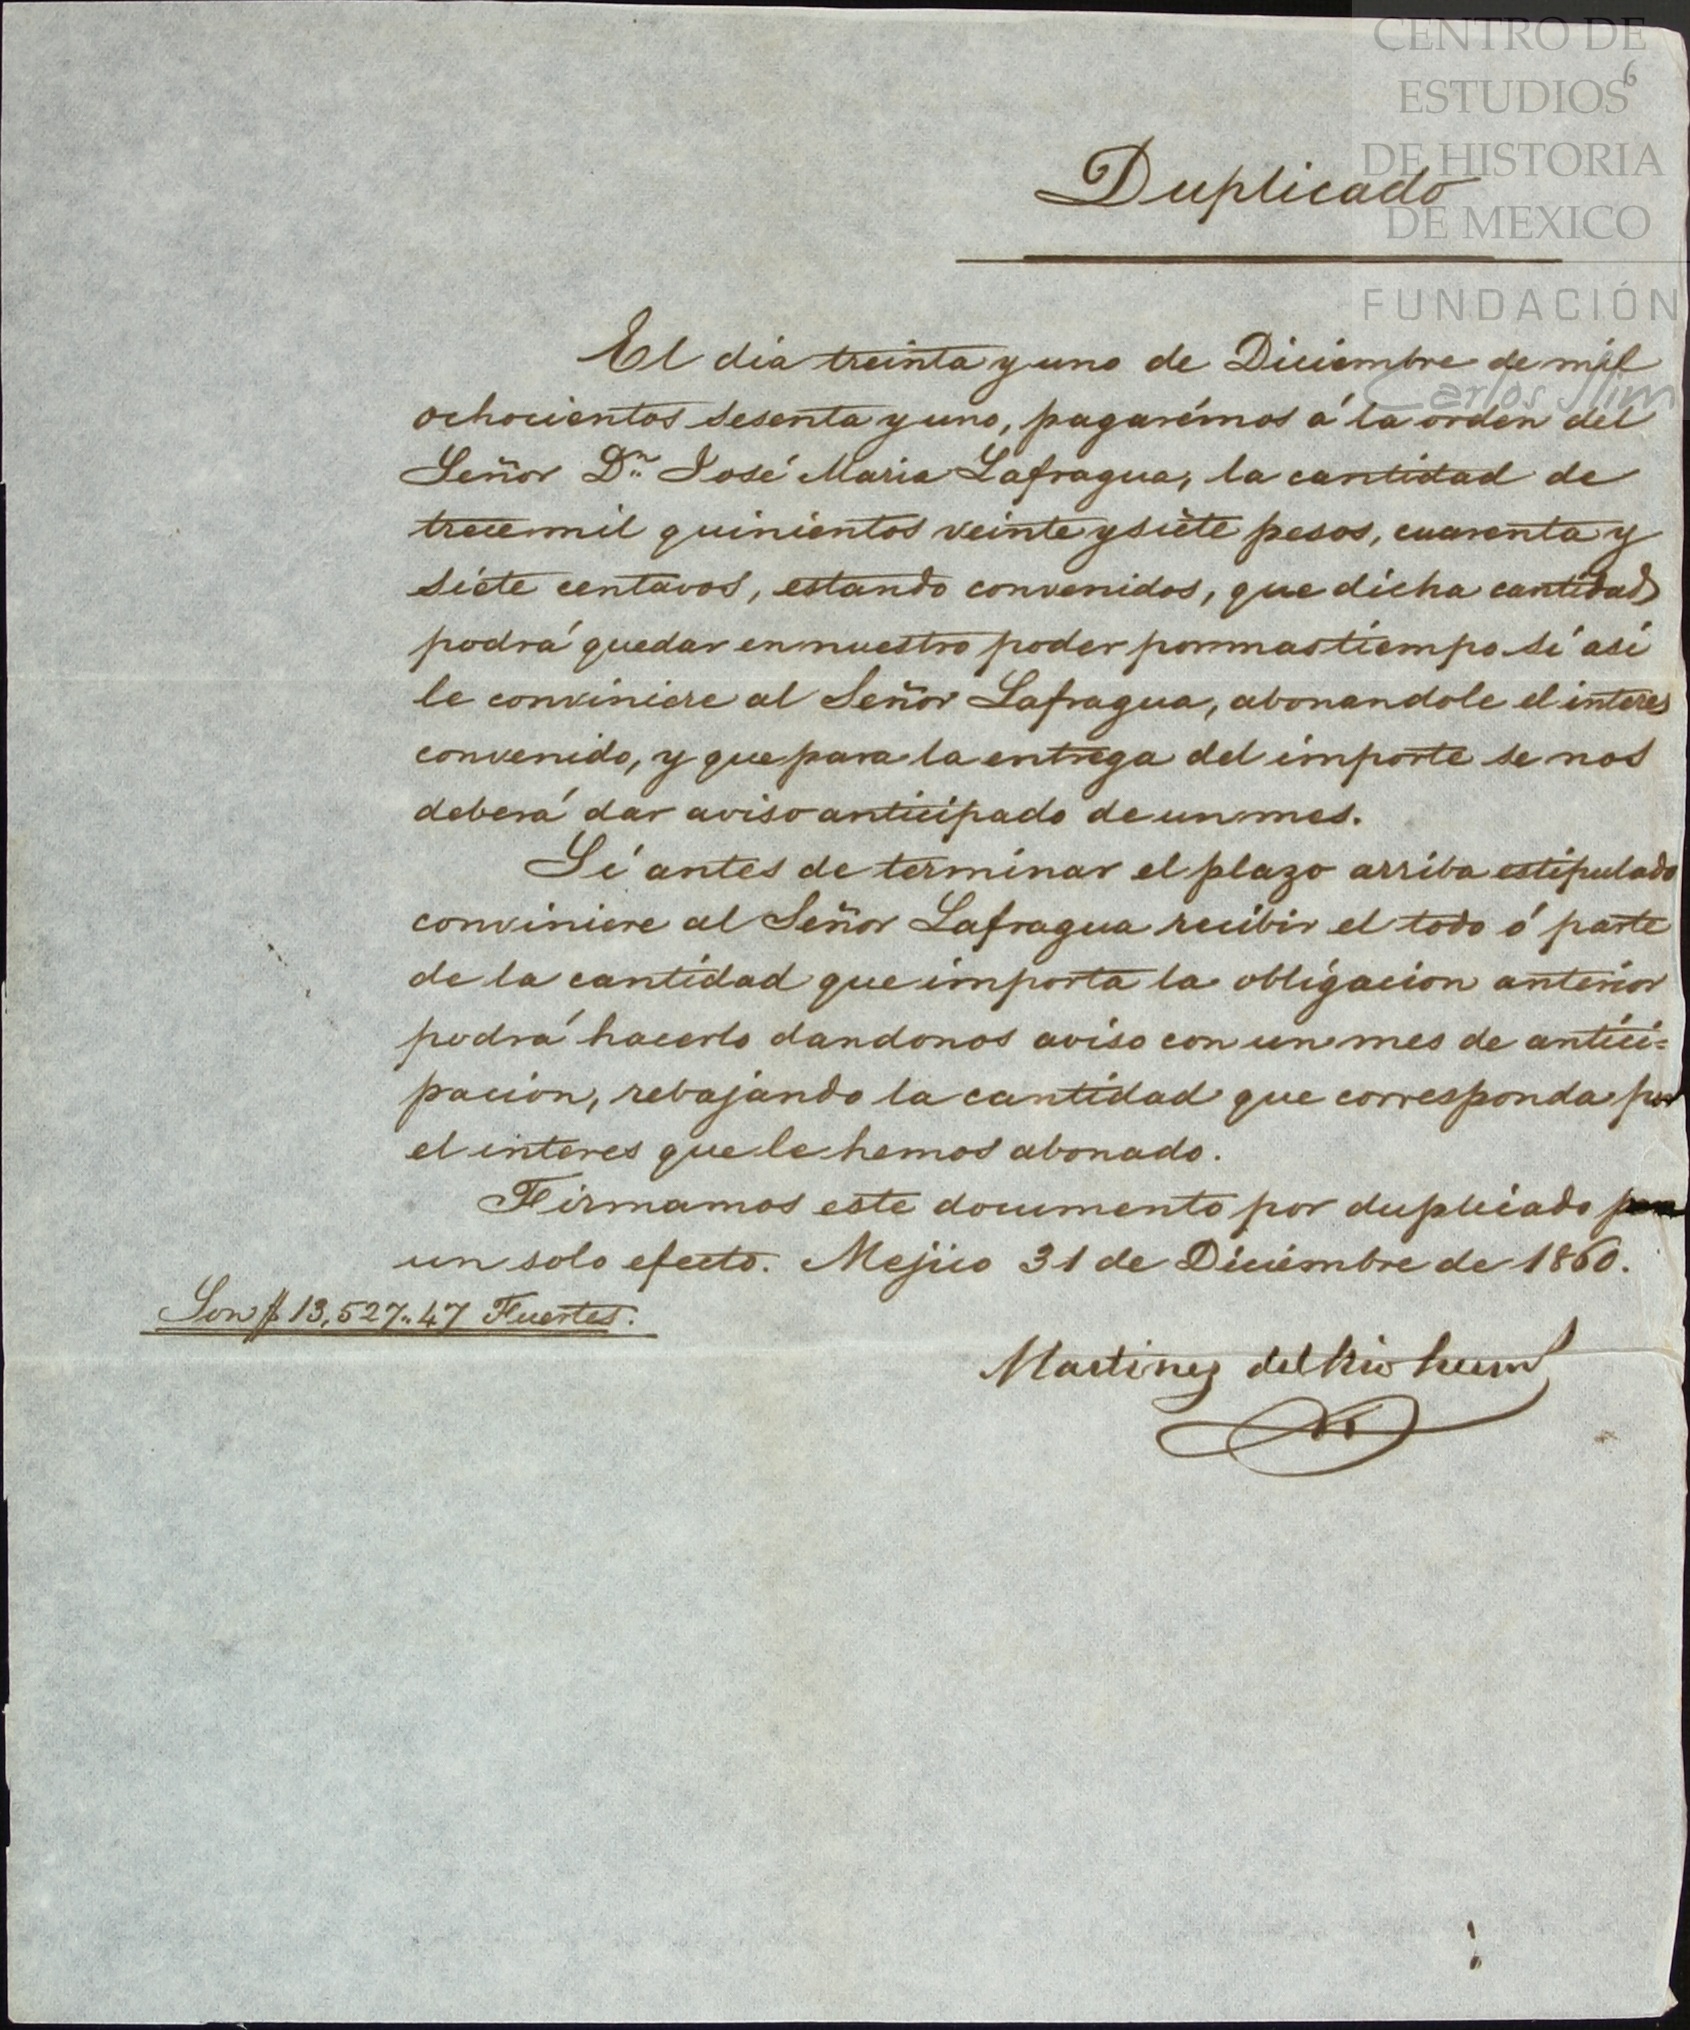 CENTRO DE
ESTUDIOS
6
DE HISTORIA
DE MEXICO
FUNDACIÓN
Carlos Slim
Duplicado
El dia treinta y uno de Diciembre de mil
ochocientos sesenta y uno, pagarémos á la orden del
Señor Dn. José Maria Lafragua, la cantidad de
trece mil quinientos veinte y siete pesos, cuarenta y
siete centavos, estando convenidos, que dicha cantidad
podrá quedar en nuestro poder por mas tiempo si asi
le conviniere al Señor Lafragua, abonandole el interes
convenido, y que para la entrega del importe se nos
deberá dar aviso anticipado de un mes.
Si antes de terminar el plazo arriba estipulado
conviniere al Señor Lafragua recibir el todo ó parte
de la cantidad que importa la obligacion anterior
podrá hacerlo dandonos aviso con un mes de antici=
pacion, rebajando la cantidad que corresponda por
el interes que le hemos abonado.
Firmamos este documento por duplicado para
un solo efecto. Mejico 31 de Diciembre de 1860.
Son $ 13,527..47 Fuertes.
Martinez del Rio herms